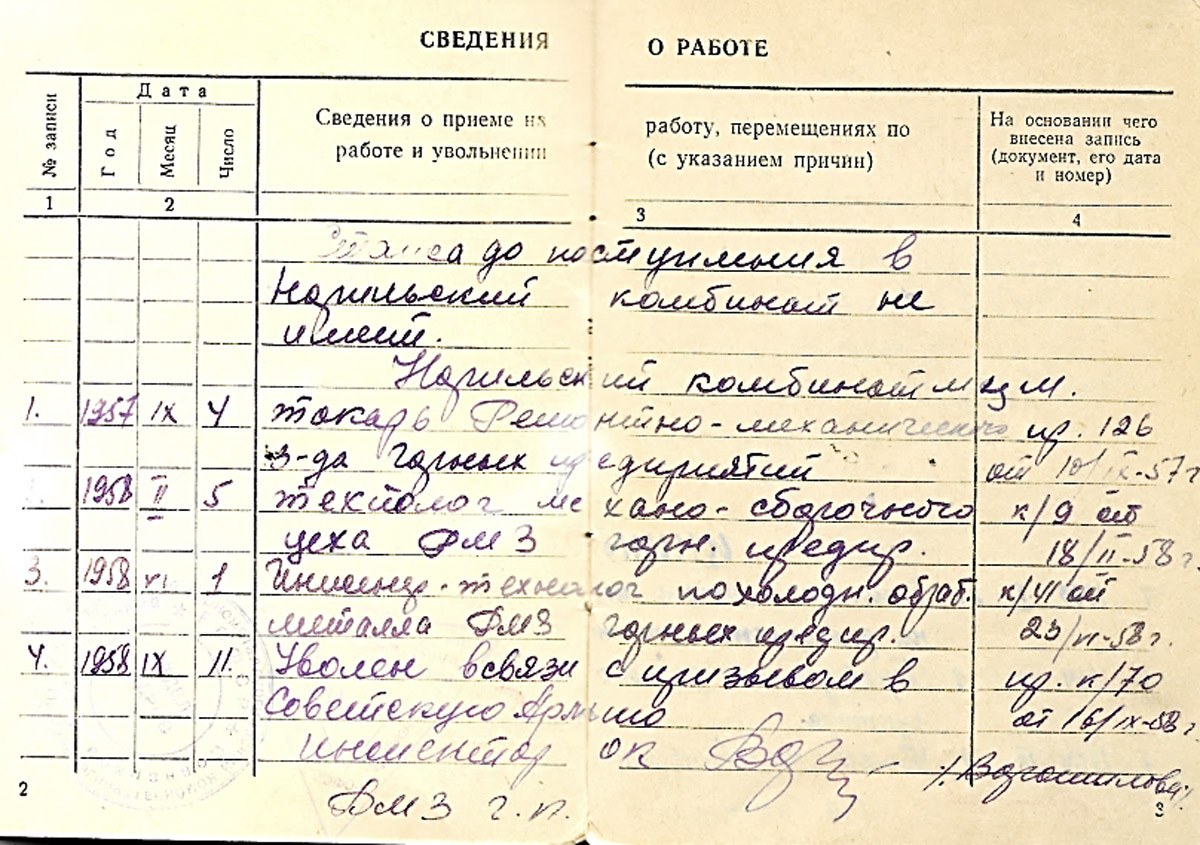 СВЕДЕНИЯ О РАБОТЕ
№ записи
Дата
Год
Месяц
Число
Сведения о приеме на работу, перемещениях по
работе и увольнении (с указанием причин)
На основании чего
внесена запись
(документ, его дата
и номер)
1 2 3 4
Стажа до поступления в
Норильский комбинат не
имеет.
Норильский комбинат МЦМ.
1. 1957 IX 4 токарь Ремонтно-механического пр. 126
з-да горных предприятий от 10/IX-57г
1958 II 5 технолог механо-сборочного к/9 от
цеха РМЗ горн. предпр. 18/II-58г.
3. 1958 VI 1 Инженер-технолог по холодн. обраб. к/41 от
металла РМЗ горных предпр. 23/VI-58г.
4. 1958 IX 11. Уволен в связи с призывом в пр. к/70
Советскую Армию от 16/IX-58г
инспектор ОК /Ворошилова/
РМЗ г.п.
2 3